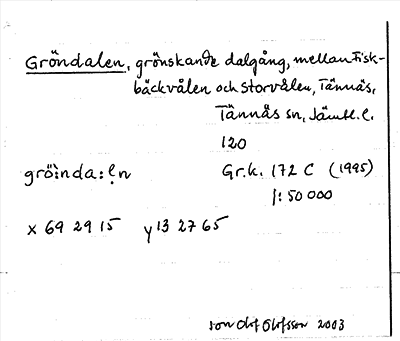 Gröndalen, grönskande dalgång, mellan Fisk-
bäckvålen och Storvålen, Tännäs,
Tännäs sn, Jämtl. l.
120
grö̀nda:ḷn Gr.k. 172 C (1995)
1:50 000
x 69 29 15 y 13 27 65
Jon Olof Olofsson 2003